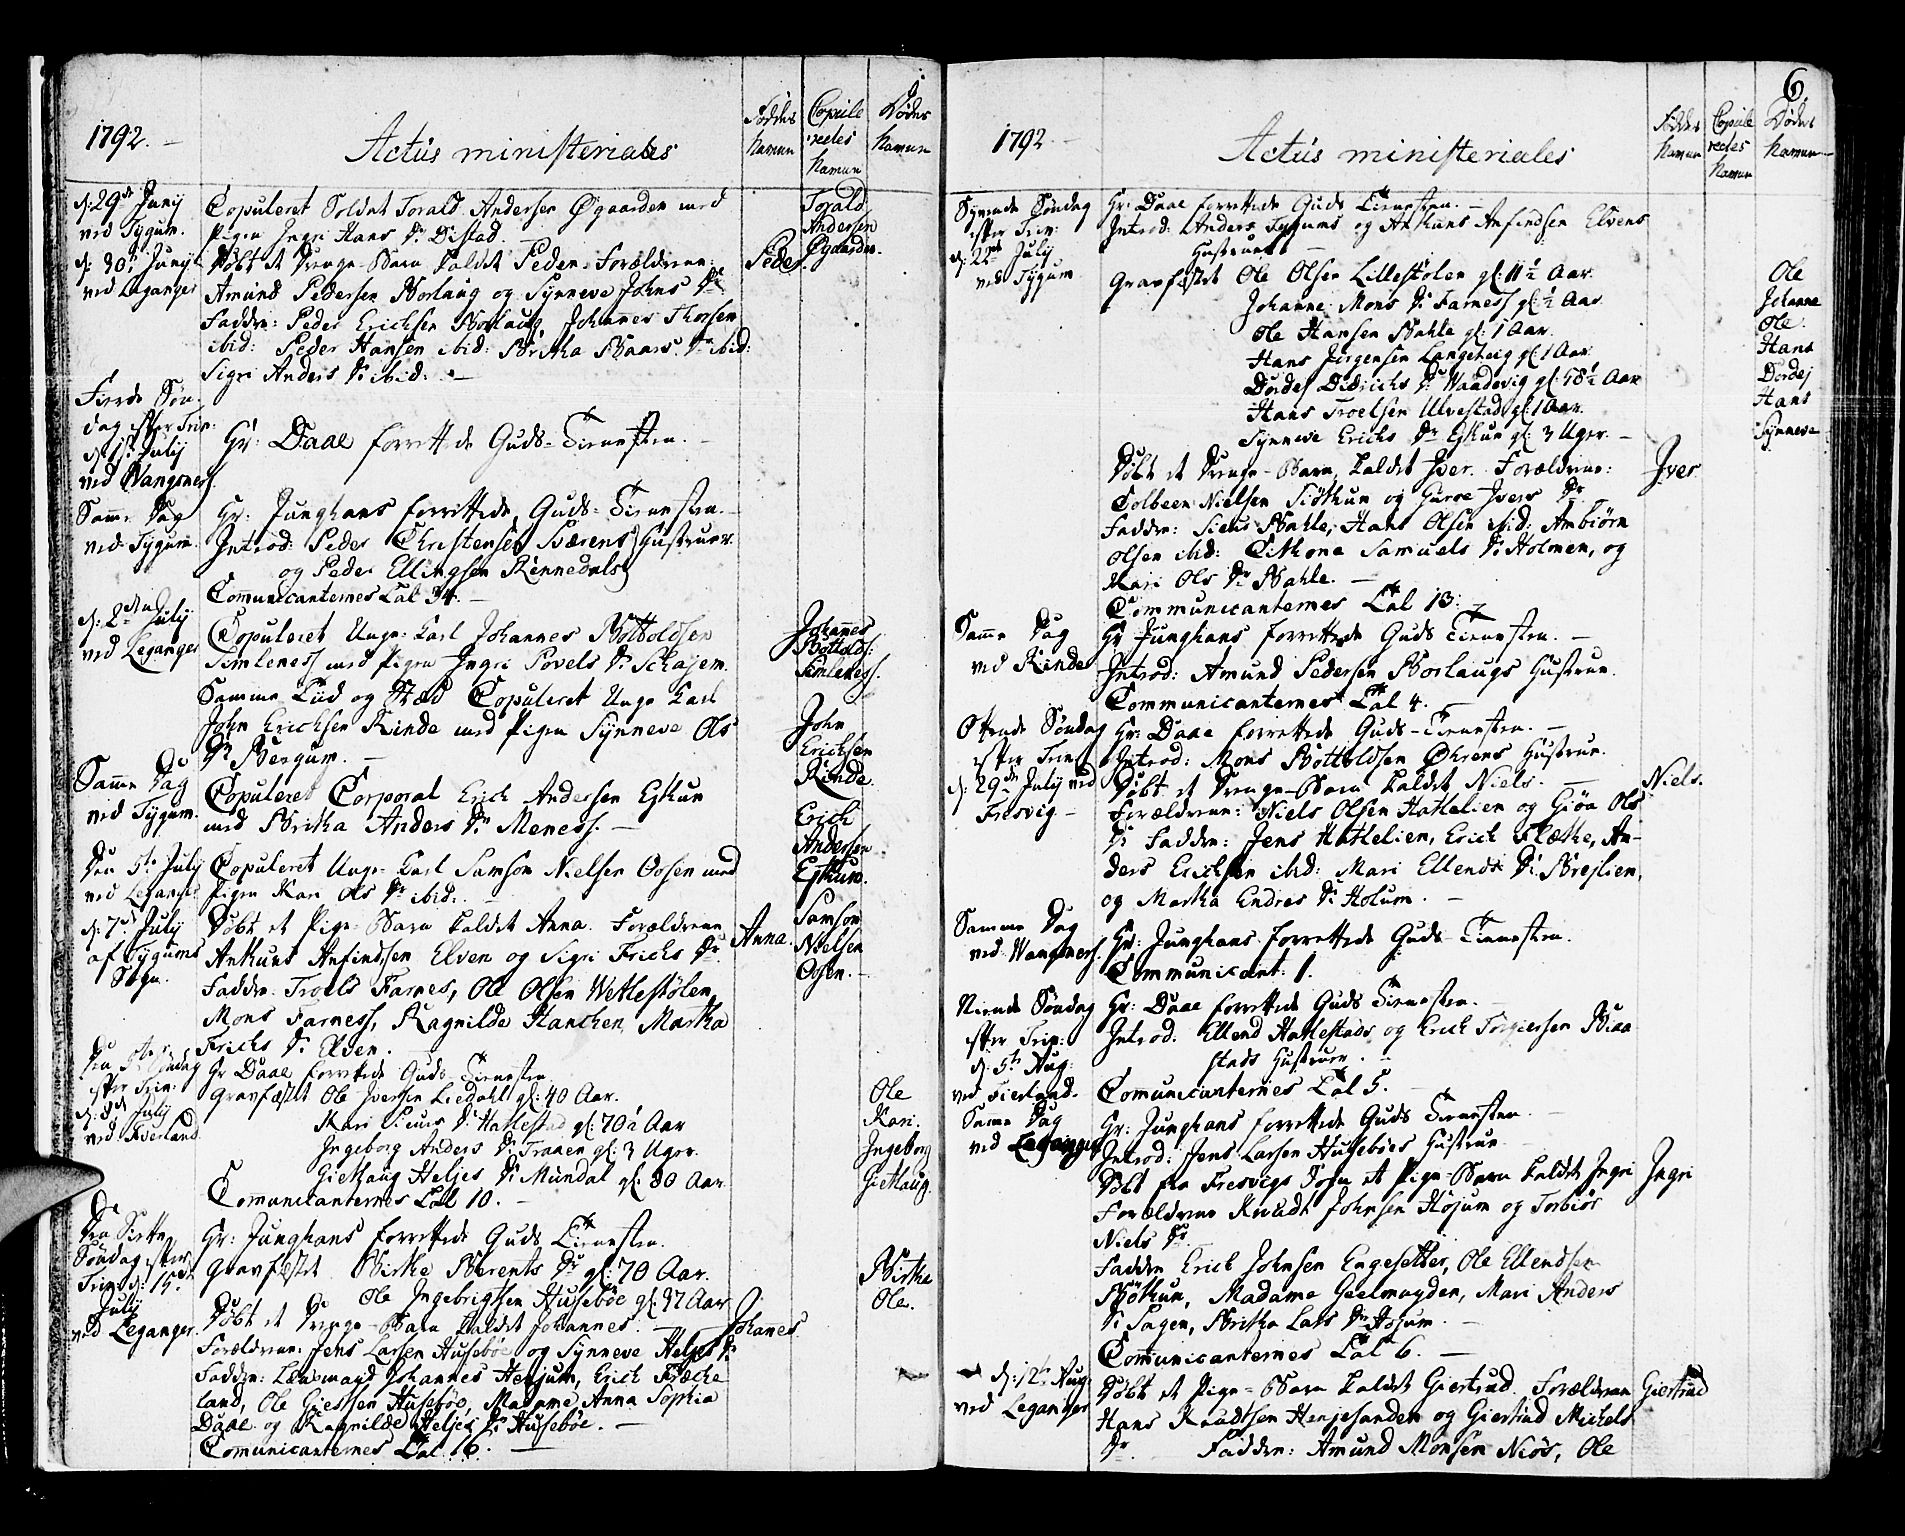 1792.
Actus ministeriales
Fødtes Navne
Copuleredes Navne
Dødes Navne
d: 29de Junij ved Tygum.
Copuleret Soldat Torald Andersen Øgaarden med
Pigen Ingri Hans Dr Distad.
Torald Andersen Øgaarden.
d: 30te Junij ved Leganger
Døbt et Drenge-Barn kaldet Peder. Forældrene:
Peder.
Amund Pedersen Borlaug og Synneve Johns Dr
Faddre: Peder Erichsen Borlaug, Johannes Thorsen
ibid: Peder Hansen ibid: Britha Baars Dr ibid:
Sigri Anders Dr ibid:
Fierde Søndag efter Trin: d: 1ste July ved Wangsnes.
Hr: Daae forrettede Guds-Tienesten.
Samme Dag ved Tygum.
Hr: Junghans forrettede Guds-Tienesten.
Introd: Peder Christensen Sværens Hustruer
og Peder Ellingsen Rennedals
Comunicanternes Tal 34.
d: 2den July ved Leganger
Copuleret Unge-Karl Johannes Bottoldsen
Simleness med Pigen Ingri Povels Dr Schajem.
Johannes Bottolds: Simleness.
Samme Tiid og Stæd Copuleret Unge Karl
John Erichsen Rinde med Pigen Synneve Ols
Dr Bergum.
John Erichsen Rinde.
Samme Dag ved Tygum.
Copuleret Corporal Erich Andersen Eshun
med Britha Anders Dr Meness.
Erich Andersen Eshun.
Den 5te July ved Leganger
Copuleret Unge-Karl Samson Nielsen Oosen med
Pigen Kari Ols Dr ibid:
Samson Nielsen Oosen.
d: 7de July af Tygums Sogn.
Døbt et Pige-Barn kaldet Anna. Forældrene
Anna.
Anthuns Anfindsen Elven og Sigri Erichs Dr
Faddre: Troels Farnes, Ole Olsen Wetlestølen,
Mons Farness, Ragnilde Hanchen, Martha
Erichs Dr Elven.
Den 5te Søndag efter Trin: d: 8de July ved Fierland.
Hr Daae forrettede Guds-Tienesten
Gravfæstet Ole Iversen Liedahl gl: 40 Aar.
Ole
Kari Siurs Dr Hatlestad gl: 70½ Aar
Kari.
Ingeborg Anders Dr Tranen gl: 3 Uger.
Ingeborg
Giethaug Heljes Dr Mundal gl: 80 Aar.
Giethaug.
Comunicanternes Tal 10.
Den Siette Søndag efter Trin: d: 15de July ved Leganger.
Hr: Junghans forrettede Guds Tienesten.
Gravfæstet Birthe Berents Dr gl: 70 Aar.
Birthe
Ole Ingebrigtsen Husebøe gl: 37 Aar
Ole.
Døbt et Drenge-Barn kaldet Johannes.
Johanes.
Forældrene: Jens Larsen Husebøe og Synneve Heljes Dr
Faddre: Lænsmand Johannes Henjum, Erich Fræthe
land, Ole Giertsen Husebøe, Madame Anna Sophia
Daae og Ragnilde Heljes Dr Husebøe.
Comunicanternes Tal 16.
6
1792
Actus ministeriales
Fødtes Navne
Copuleredes Navne
Dødes Navne
Syvende Søndag efter Trin: d: 22de July ved Tygum
Hr: Daae forrettede Guds Tienesten.
Introd: Anders Tygums og Anthuns Anfindsen Elvens
Hustruer
Gravfæstet Ole Olsen Lillestølen gl: 11½ Aar.
Ole
Johanne Mons Dr Farness gl: ½ Aar.
Johanne
Ole Hansen Bahle gl: 1 Aar.
Ole.
Hans Jørgensen Langeteig gl: 1 Aar.
Hans
Dordej Didrichs Dr Waadevig gl: 58½ Aar
Dordej
Hans Troelsen Ulvestad gl: 1 Aar.
Hans
Synneve Erichs Dr Eshun gl: 3 Uger.
Synneve
Døbt et Drenge-Barn kaldet Iver. Forældrene:
Iver.
Tolbeen Nielsen Siøthun og Guroe Ivers Dr
Faddre: Siurs Bahle, Hans Olsen ibid: Ambiørn
Olsen ibid: Sithone Samuels Dr Holmen, og
Kari Ols Dr Bahle.
Communicanternes Tal 13.
Samme Dag ved Rinde
Hr Junghans forrettede Guds Tienesten.
Introd: Amund Pedersen Borlaugs Hustrue.
Communicanternes Tal 4.
Ottende Søndag efter Trin d: 29de July ved Fresvig
Hr: Daae forrettede Guds-Tienesten.
Introd: Mons Bottoldsen Øhrens Hustrue.
Døbt et Drenge-Barn kaldet Niels.
Niels.
Forældrene: Niels Olsen Hatlelien og Giøa Ols
Dr Faddre: Jens Hatlelien, Erich Flæthe, An-
ders Erichsen ibid: Mari Ellends Dr Brejlien,
og Martha Endres Dr Holum.
Samme Dag ved Wangsnes.
Hr: Junghans forrettede Guds-Tienesten.
Communicant: 1.
Niende Søndag efter Trin: d: 5te Aug: ved Fierland.
Hr: Daae forrettede Guds Tienesten.
Introd: Ellend Hatlestads og Erich Torgiersen Biaa
stads Hustruer.
Comunicanternes Tal 5.
Samme Dag ved Leganger
Hr: Junghans forrettede Guds Tienesten.
Introd: Jens Larsen Husebøes Hustrue
Døbt fra Fresvigs Sogn et Pige-Barn kaldet Ingri
Ingri
Forældrene Knudt Johnsen Højum og Torbiør
Niels Dr.
Faddre Erich Johnsen Engesetter, Ole Ellendsen
Bøthun, Madame Geelmuyden, Mari Anders
Dr Sagen, Britha Lars Dr Høyum.
Comunicanternes Tal 6.
d: 12te Aug: ved Leganger
Døbt et Pige-Barn kaldet Giertrud. Forældrene
Giertrud
Hans Knudtsen Henjesanden og Giertrud Michels
Dr Faddre: Amund Monsen Niøs, Ole